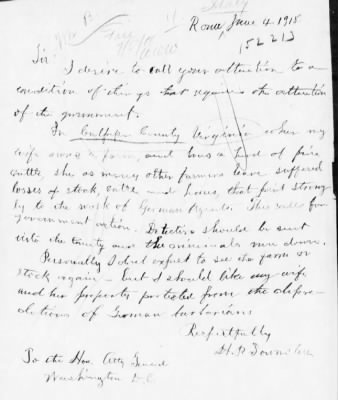 Italy
Roma, June 4. 1918
152213
Sir:
I desire to call your attention to a
condition of things that requires the attention
of the government.
In Culpeper County Virginia where my
wife owns a farm, and has a herd of fine
cattle, she as many other farmers have suffered
losses of stock, cattle and horses, that point strong
ly to the work of German Agents. This calls for
government action. Detectives should be sent
into the County and the criminals run down.
Personally I don't expect to see the farm or
stock again — but I should like my wife
and her property protected from the depre-
dations of German barbarians
Respectfully
To the Hon. Atty General
Washington D.C.